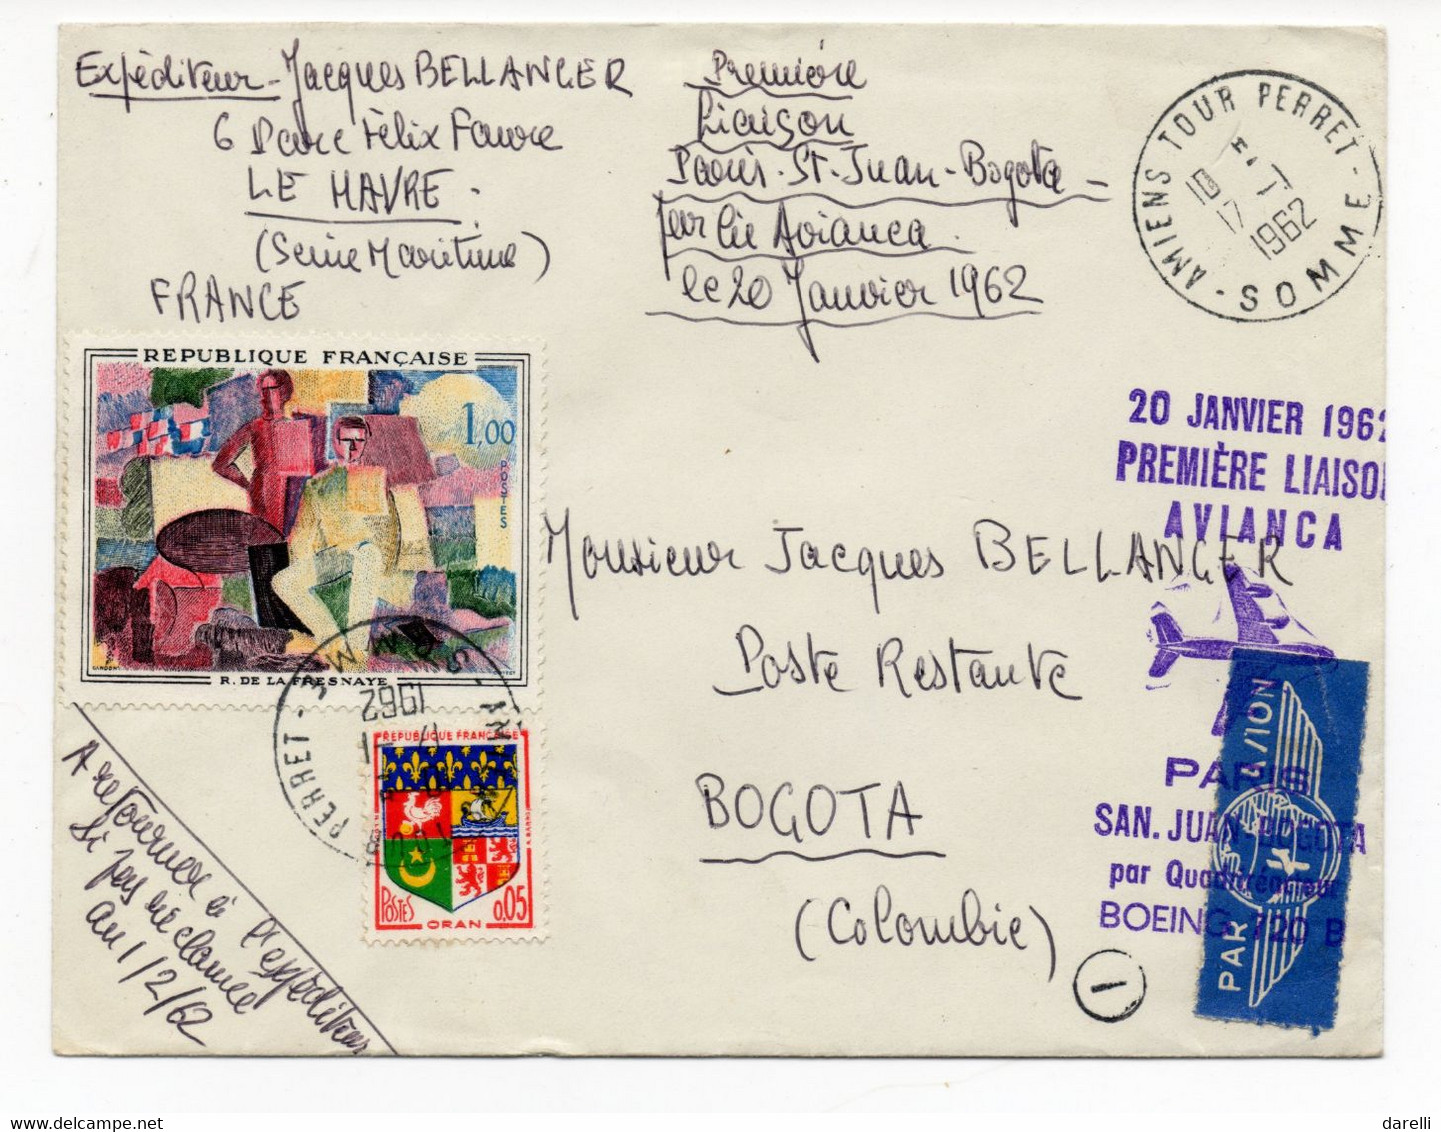 Expéditeur - Jacques BELLANGER
6 Parc Félix Faure
LE HAVRE -
(Seine Maritime)
FRANCE
Première
Liaison
Paris - St-Juan - Bogota -
par Cie Avianca.
le 20 Janvier 1962
AMIENS TOUR PERRET - SOMME -
17 - 1
1962
REPUBLIQUE FRANÇAISE
1,00
POSTES
GANDON
R. DE LA FRESNAYE
SOMME
1962
PERRET -
REPUBLIQUE FRANÇAISE
POSTES
0,05
ORAN
20 JANVIER 1962
PREMIÈRE LIAISON
AVIANCA
PARIS
SAN. JUAN - BOGOTA
par Quadriréacteur
BOEING 720 B
PAR AVION
Monsieur Jacques BELLANGER
Poste Restante
BOGOTA
(Colombie)
1
A retourner à l'expéditeur
Si pas réclamée
au 1/2/62
darelli